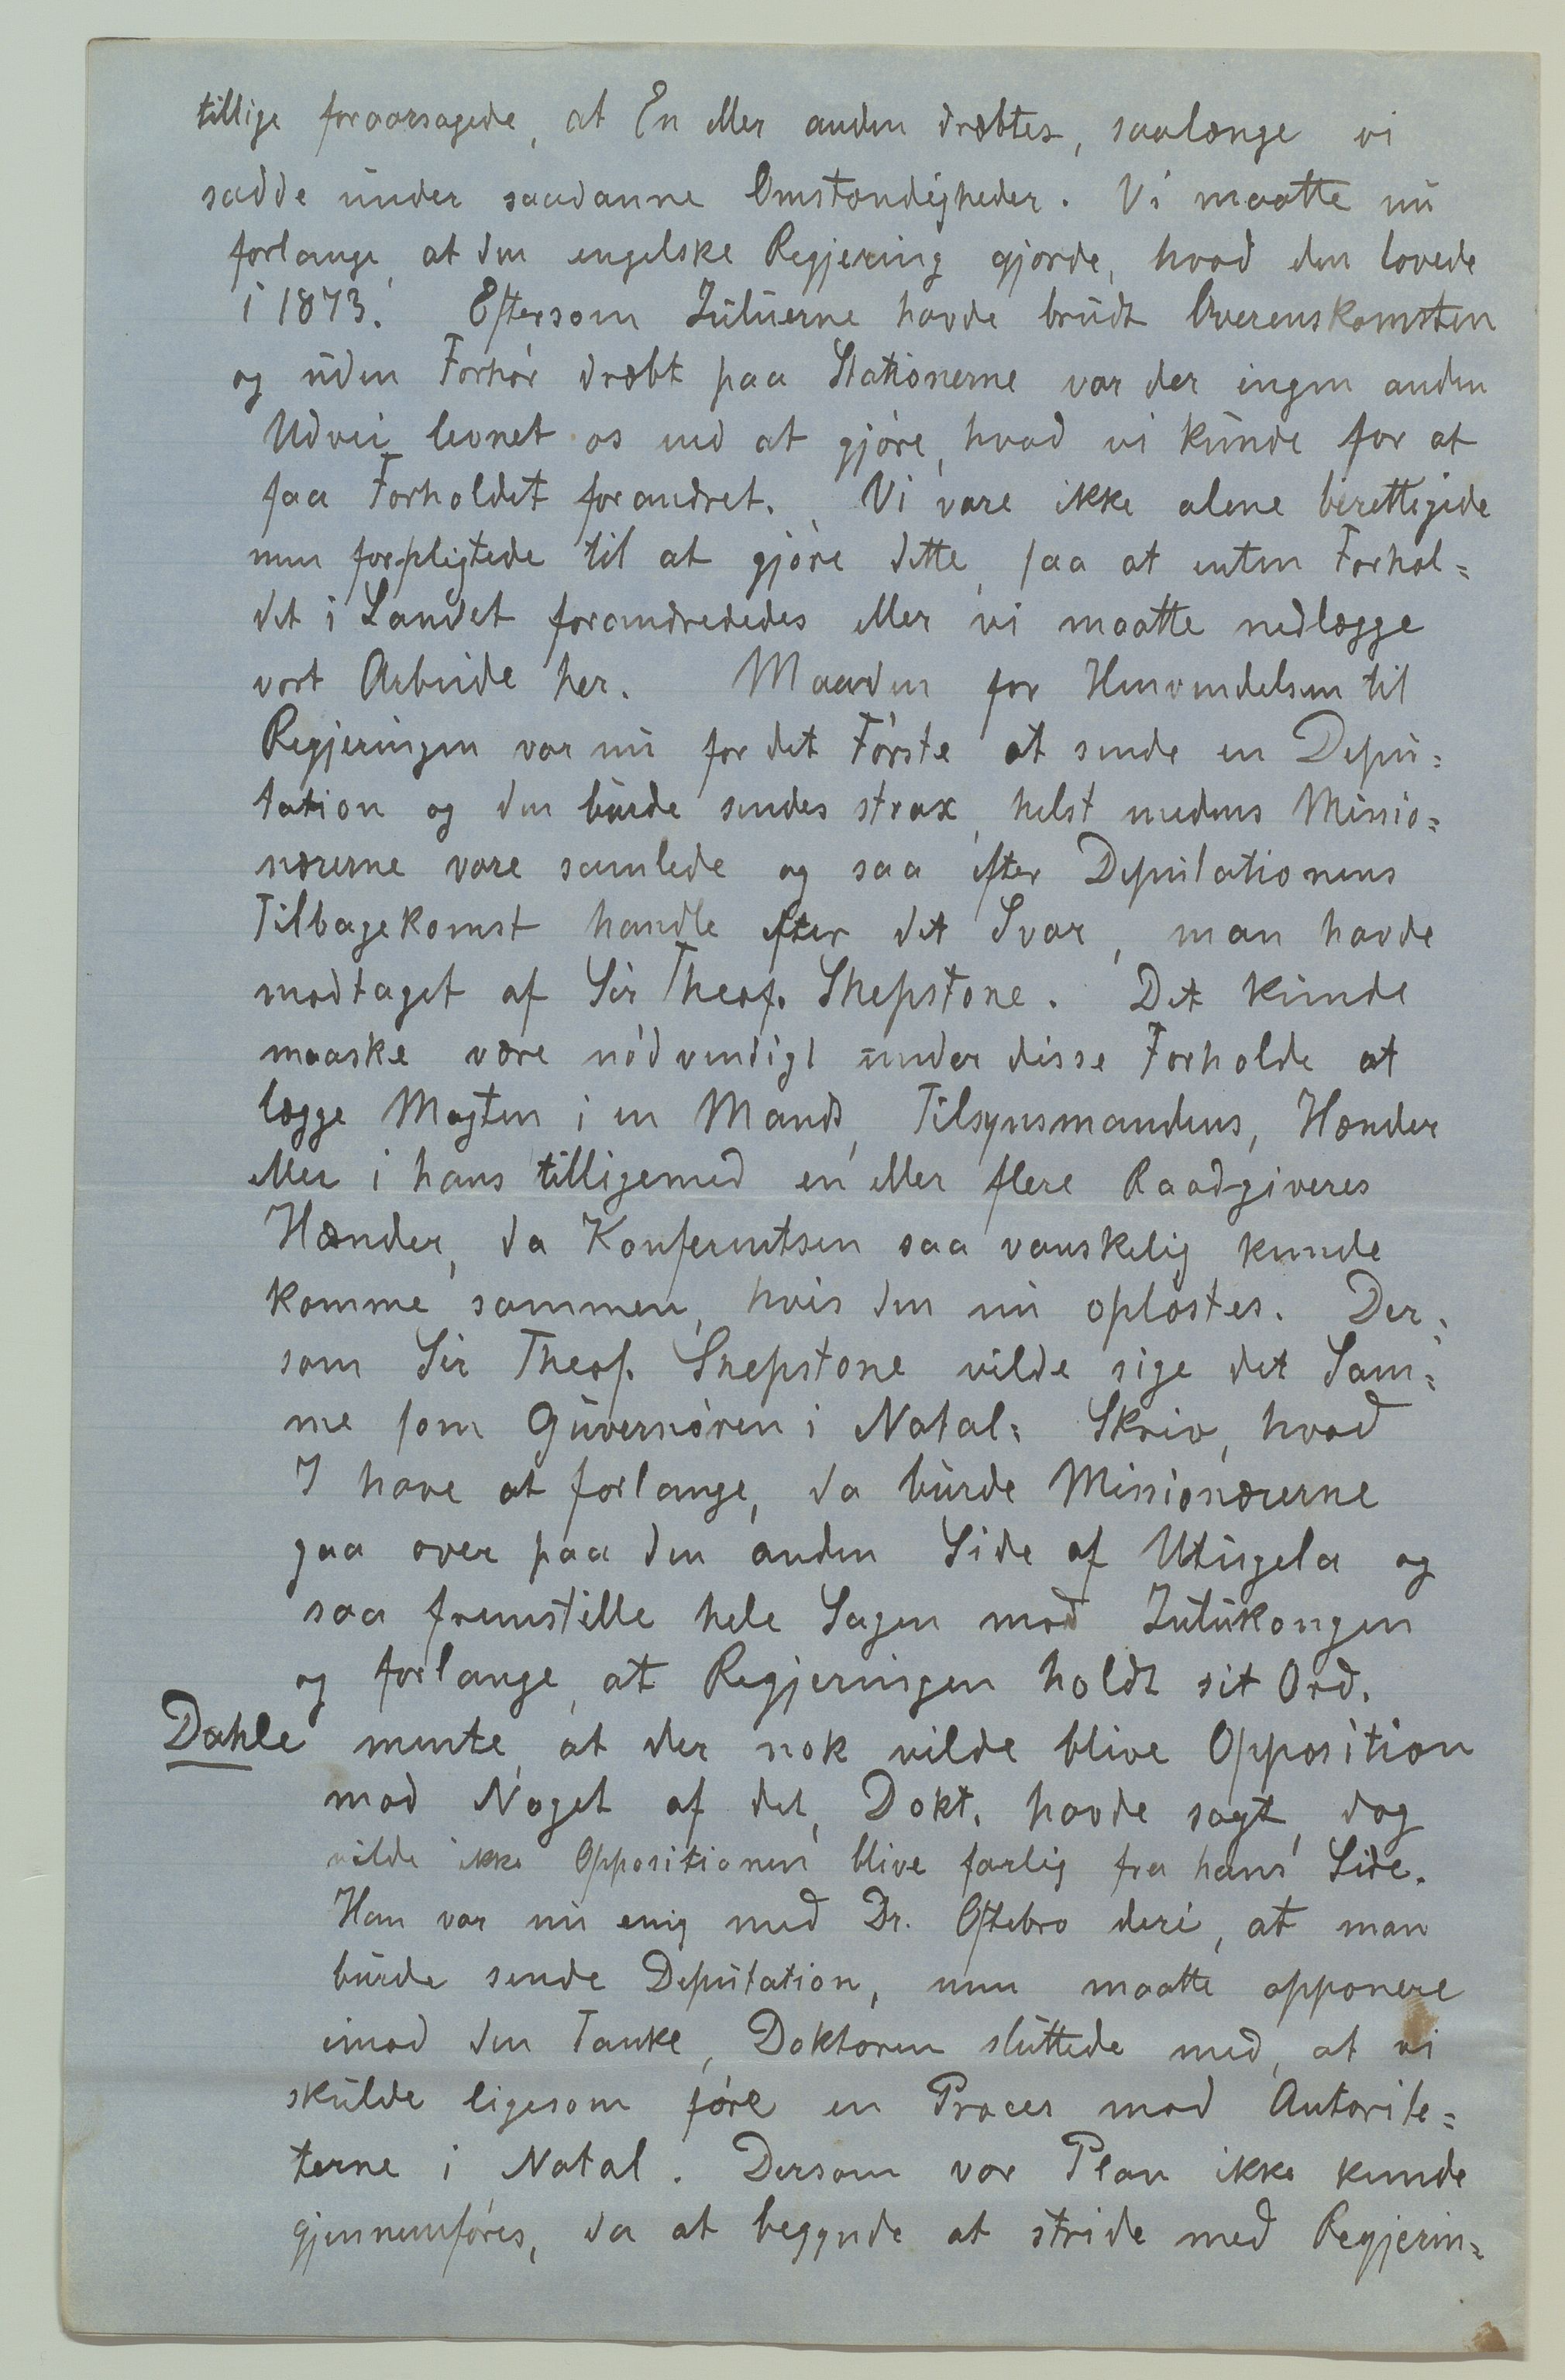 tillige foraarsagede, at En eller anden dræbtes, saalænge vi
sadde under saadanne Omstændigheder. Vi maatte nu
forlange, at den engelske Regjering gjorde, hvad den lovede
i 1873. Eftersom Zuluerne havde brudt Overenskomsten
og uden Forhør dræbt paa Stationerne var der ingen anden
Udvei levnet os end at gjøre, hvad vi kunde for at
faa Forholdet forandret. Vi vare ikke alene berettigede
men forpligtede til at gjøre dette, saa at enten Forhol=
det i Landet forandrededes eller vi maatte nedlægge
vort Arbeide her. Maaden for Henvendelsen til
Regjeringen var nu for det Første at sende en Depu=
tation og den burde sendes strax, helst medens Missio=
nærerne vare samlede og saa efter Deputationens
Tilbagekomst handle efter det Svar, man havde
modtaget af Sir Theof. Shepstone. Det kunde
maaske være nødvendigt under disse Forholde at
lægge Magten i en Mands, Tilsynsmandens, Hænder
eller i hans tilligemed en eller flere Raadgiveres
Hænder, da Konferentsen saa vanskelig kunde
komme sammen, hvis den nu opløstes. Der=
som Sir Theof. Shepstone vilde sige det Sam=
me som Guvernøren i Natal: Skriv, hvad
I have at forlange, da burde Missionærerne
gaa over paa den anden Side af Utugela og
saa fremstille hele Sagen mod Zulukongen
og forlange, at Regjeringen holdt sit Ord.
Dahle mente, at der nok vilde blive Opposition
mod Noget af det, Dokt. havde sagt, dog
vilde ikke Oppositionen blive farlig fra hans Side.
Han var nu enig med Dr. Oftebro deri, at man
burde sende Deputation, men maatte opponere
imod den Tanke, Doktoren sluttede med, at vi
skulde ligesom føre en Proces mod Autorite=
terne i Natal. Dersom vor Plan ikke kunde
gjennemføres, da at begynde at stride med Regjerin=